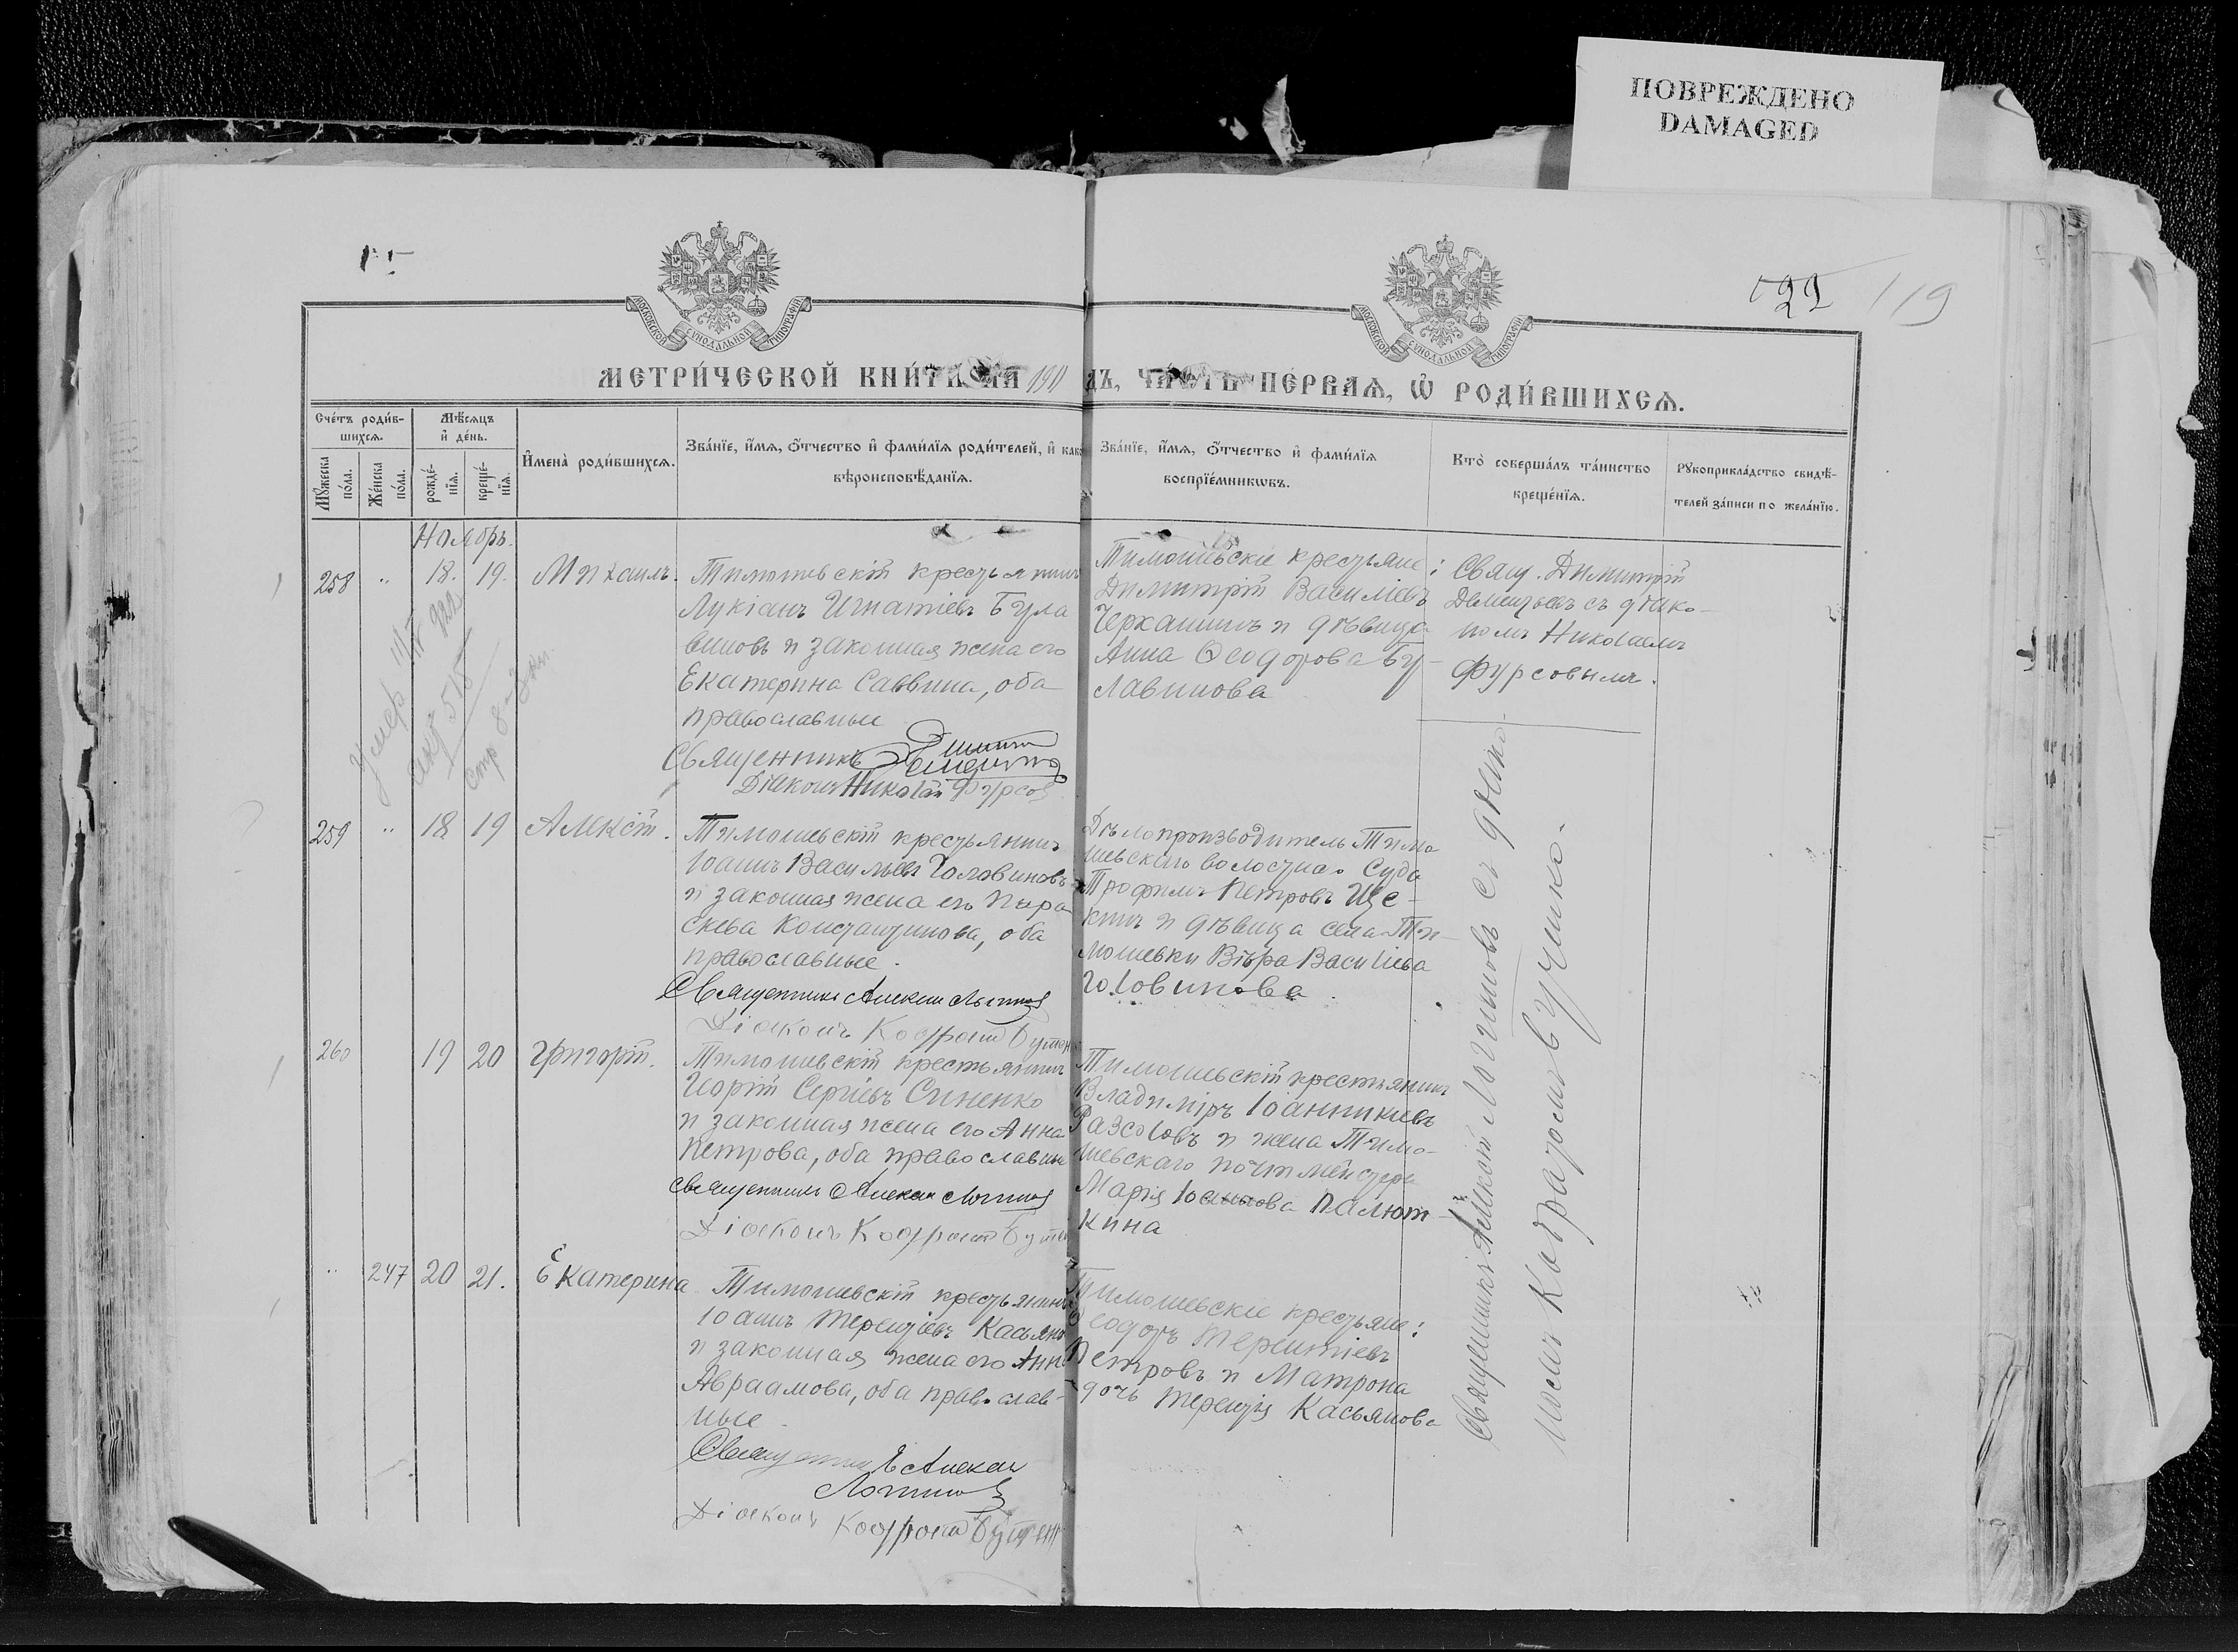 ПОВРЕЖДЕНО
DAMAGED
119
МОСКОВСКОЙ СѴНОДАЛЬНОЙ ТИПОГРАФІИ
МОСКОВСКОЙ СѴНОДАЛЬНОЙ ТИПОГРАФІИ
МЕТРИ́ЧЕСКОЙ КНИ́ГИ НА 1911
ДЪ, ЧА́СТЬ ПЕ́РВАЯ, Ѡ҆ РОДИ́ВШИХСЯ.
Сче́тъ роди́в-
шихся.
Мѣ́сяцъ
и҆ де́нь.
Мꙋ́жеска
по́ла.
Же́нска
по́ла.
рожде́-
нїя.
креще́-
нїя.
И҆мена̀ роди́вшихся.
Зва́нїе, и҆́мя, ѻ҆́тчество и҆ фами́лїя роди́телей, и҆ како
вѣроисповѣ́данїя.
Зва́нїе, и҆́мя, ѻ҆́тчество и҆ фами́лїя
воспрїе́мникѡвъ.
Кто̀ соверша́лъ та́инство
креще́нїя.
Рꙋкоприкла́дство свидѣ́-
телей за́писи по жела́нїю.
Ноябрь.
258 " 18. 19. Михаилъ.
Тимошевскій крестьянинъ
Лукіанъ Игнатіевъ Була
виновъ и законная жена его
Екатерина Саввина, оба
православные
Священникъ Димит
Дементьев
Діаконъ Николай Фурсов
Тимошевскіе крестьяне:
Димитрій Василіевъ
Черкашинъ и дѣвица
Анна Ѳеодорова Бу-
лавинова
Свящ. Димитрій
Дементьевъ съ діако-
номъ Николаемъ
Фурсовымъ.
Умер
акт 515
стр 8
259 " 18 19 Алексій.
Тимошевскій крестьянинъ
Іоаннъ Васильевъ Головиновъ
и законная жена его Пара
скева Константинова, оба
православные.
Священникъ Алексій Логинов
Діаконъ Кодратъ Бутен
Дѣлопроизводитель Тимо
шевскаго волостнаго Суда
Трофимъ Петровъ Ще-
кинъ и дѣвица села Ти-
мошевки Вѣра Василіева
Головинова.
260 19 20 Григорій.
Тимошевскій крестьянинъ
Георгій Сергіевъ Синенко
и законная жена его Анна
Петрова, оба православные
Священникъ Алексій Логинов
Діаконъ Кодратъ Бутен
Тимошевскій крестьянинъ
Владиміръ Іоанникіевъ
Разсоловъ и жена Тимо-
шевскаго почтмейстера
Марія Іоаннова Палют-
кина
" 247 20 21. Екатерина
Тимошевскій крестьянинъ
Іоаннъ Терентіевъ Касьяно
и законная жена его Анна
Авраамова, оба православ-
ные.
Священникъ Алексій
Логинов
Діаконъ Кодратъ Бутен
Тимошевскіе крестьяне:
Ѳеодоръ Терентіевъ
Петровъ и Матрона
дочь Терентія Касьянова
Священникъ Алексій Логиновъ съ діако-
номъ Кодратомъ Бутенко.